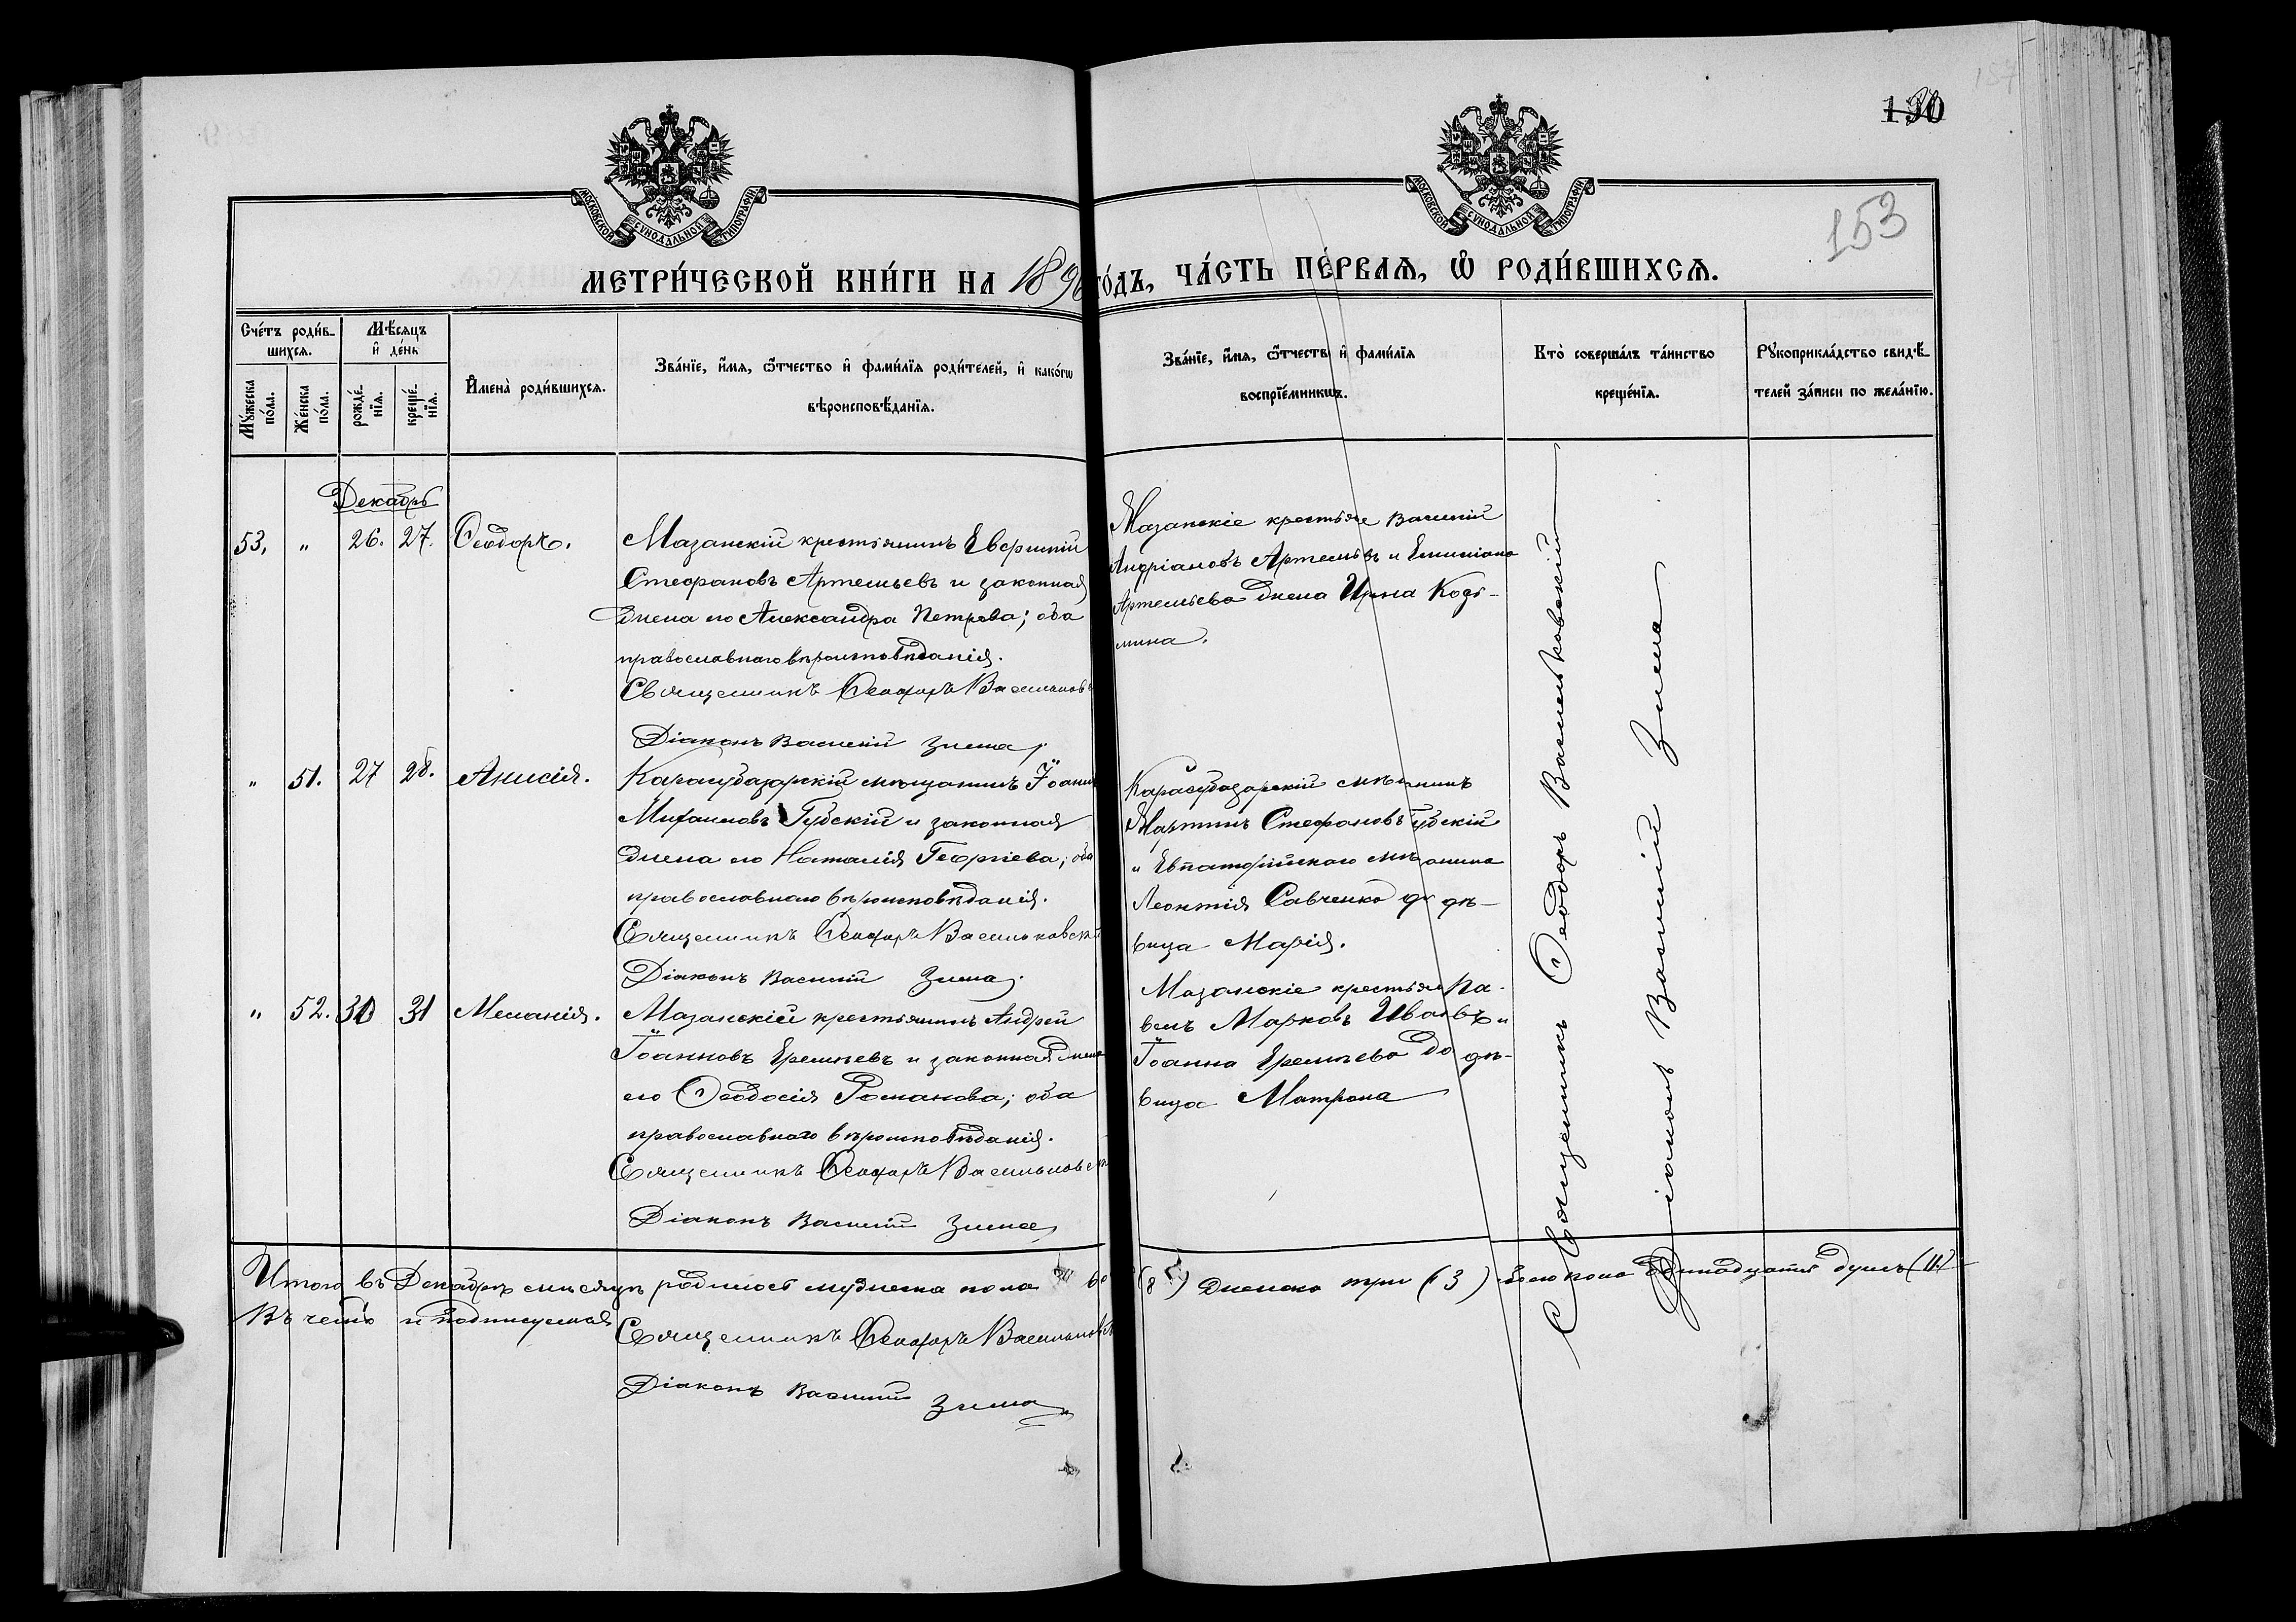 130
153
МОСКОВСКОЙ СѴНОДАЛЬНОЙ ТИПОГРАФІИ
МОСКОВСКОЙ СѴНОДАЛЬНОЙ ТИПОГРАФІИ
МЕТРИ́ЧЕСКОЙ КНИ́ГИ НА 189
ГО́ДЪ, ЧА́СТЬ ПЕ́РВАѦ, Ѡ҆ РОДИ́ВШИХСѦ.
Сче́тъ роди́в-
шихсѧ.
Мꙋ́жеска
по́ла.
Же́нска
по́ла.
Мѣ́сѧцъ
и҆ де́нь
рожде́-
нїѧ.
креще́-
нїѧ.
И҆мена̀ роди́вшихсѧ.
Зва́нїе, и҆́мѧ, ѻ҆́тчество и҆ фами́лїѧ роди́телей, и҆ како́гѡ
вѣроисповѣ́данїѧ.
Зва́нїе, и҆́мѧ, ѻ҆́тчество и҆ фами́лїѧ
воспрїе́мникѡвъ.
Кто̀ соверша́лъ та́инство
креще́нїѧ.
Рꙋкоприкла́дство свидѣ́-
телей за́писи по жела́нїю.
Декабрь
53. " 26. 27. Ѳеодоръ.
Мазанскій крестьянинъ Евсригній
Стефановъ Артемьевъ и законная
жена его Александра Петрова; оба
православнаго вѣроисповѣданія.
Священникъ Ѳеодоръ Васильковс
Діаконъ Василій Зима
Мазанскіе крестьяне Василій
Андріановъ Артемьевъ и Емиліана
Артемьева жена Ирина Козь-
мина.
" 51. 27 28. Анисія.
Карасубазарскій мѣщанинъ Іоаннъ
Михаиловъ Губскій и законная
жена его Наталія Георгіева; оба
православнаго вѣроисповѣданія.
Священникъ Ѳеодоръ Васильковскі
Діаконъ Василій Зима
Карасубазарскій мѣщанинъ
Мартинъ Стефановъ Губскій
и Евпаторійскаго мѣщанина
Леонтія Савченко дѣ-
вица Марія.
" 52. 30 31 Меланія.
Мазанскій крестьянинъ Андрей
Іоанновъ Еремѣевъ и законная жена
его Ѳеодосія Романова; оба
православнаго вѣроисповѣданія.
Священникъ Ѳеодоръ Васильковск
Діаконъ Василій Зима
Мазанскіе крестьяне Па-
велъ Марковъ Ивановъ и
Іоанна Еремѣева до дѣ-
вица Матрона
Священникъ Ѳеодоръ Васильковскій
Діаконъ Василій Зима
Итого въ Декабрѣ мѣсяцѣ родилось мужеска пола
(8) женска три (3) обоего пола одинадцать душъ (11)
Въ чемъ и подписуемся
Священникъ Ѳеодоръ Васильковск
Діаконъ Василій Зима